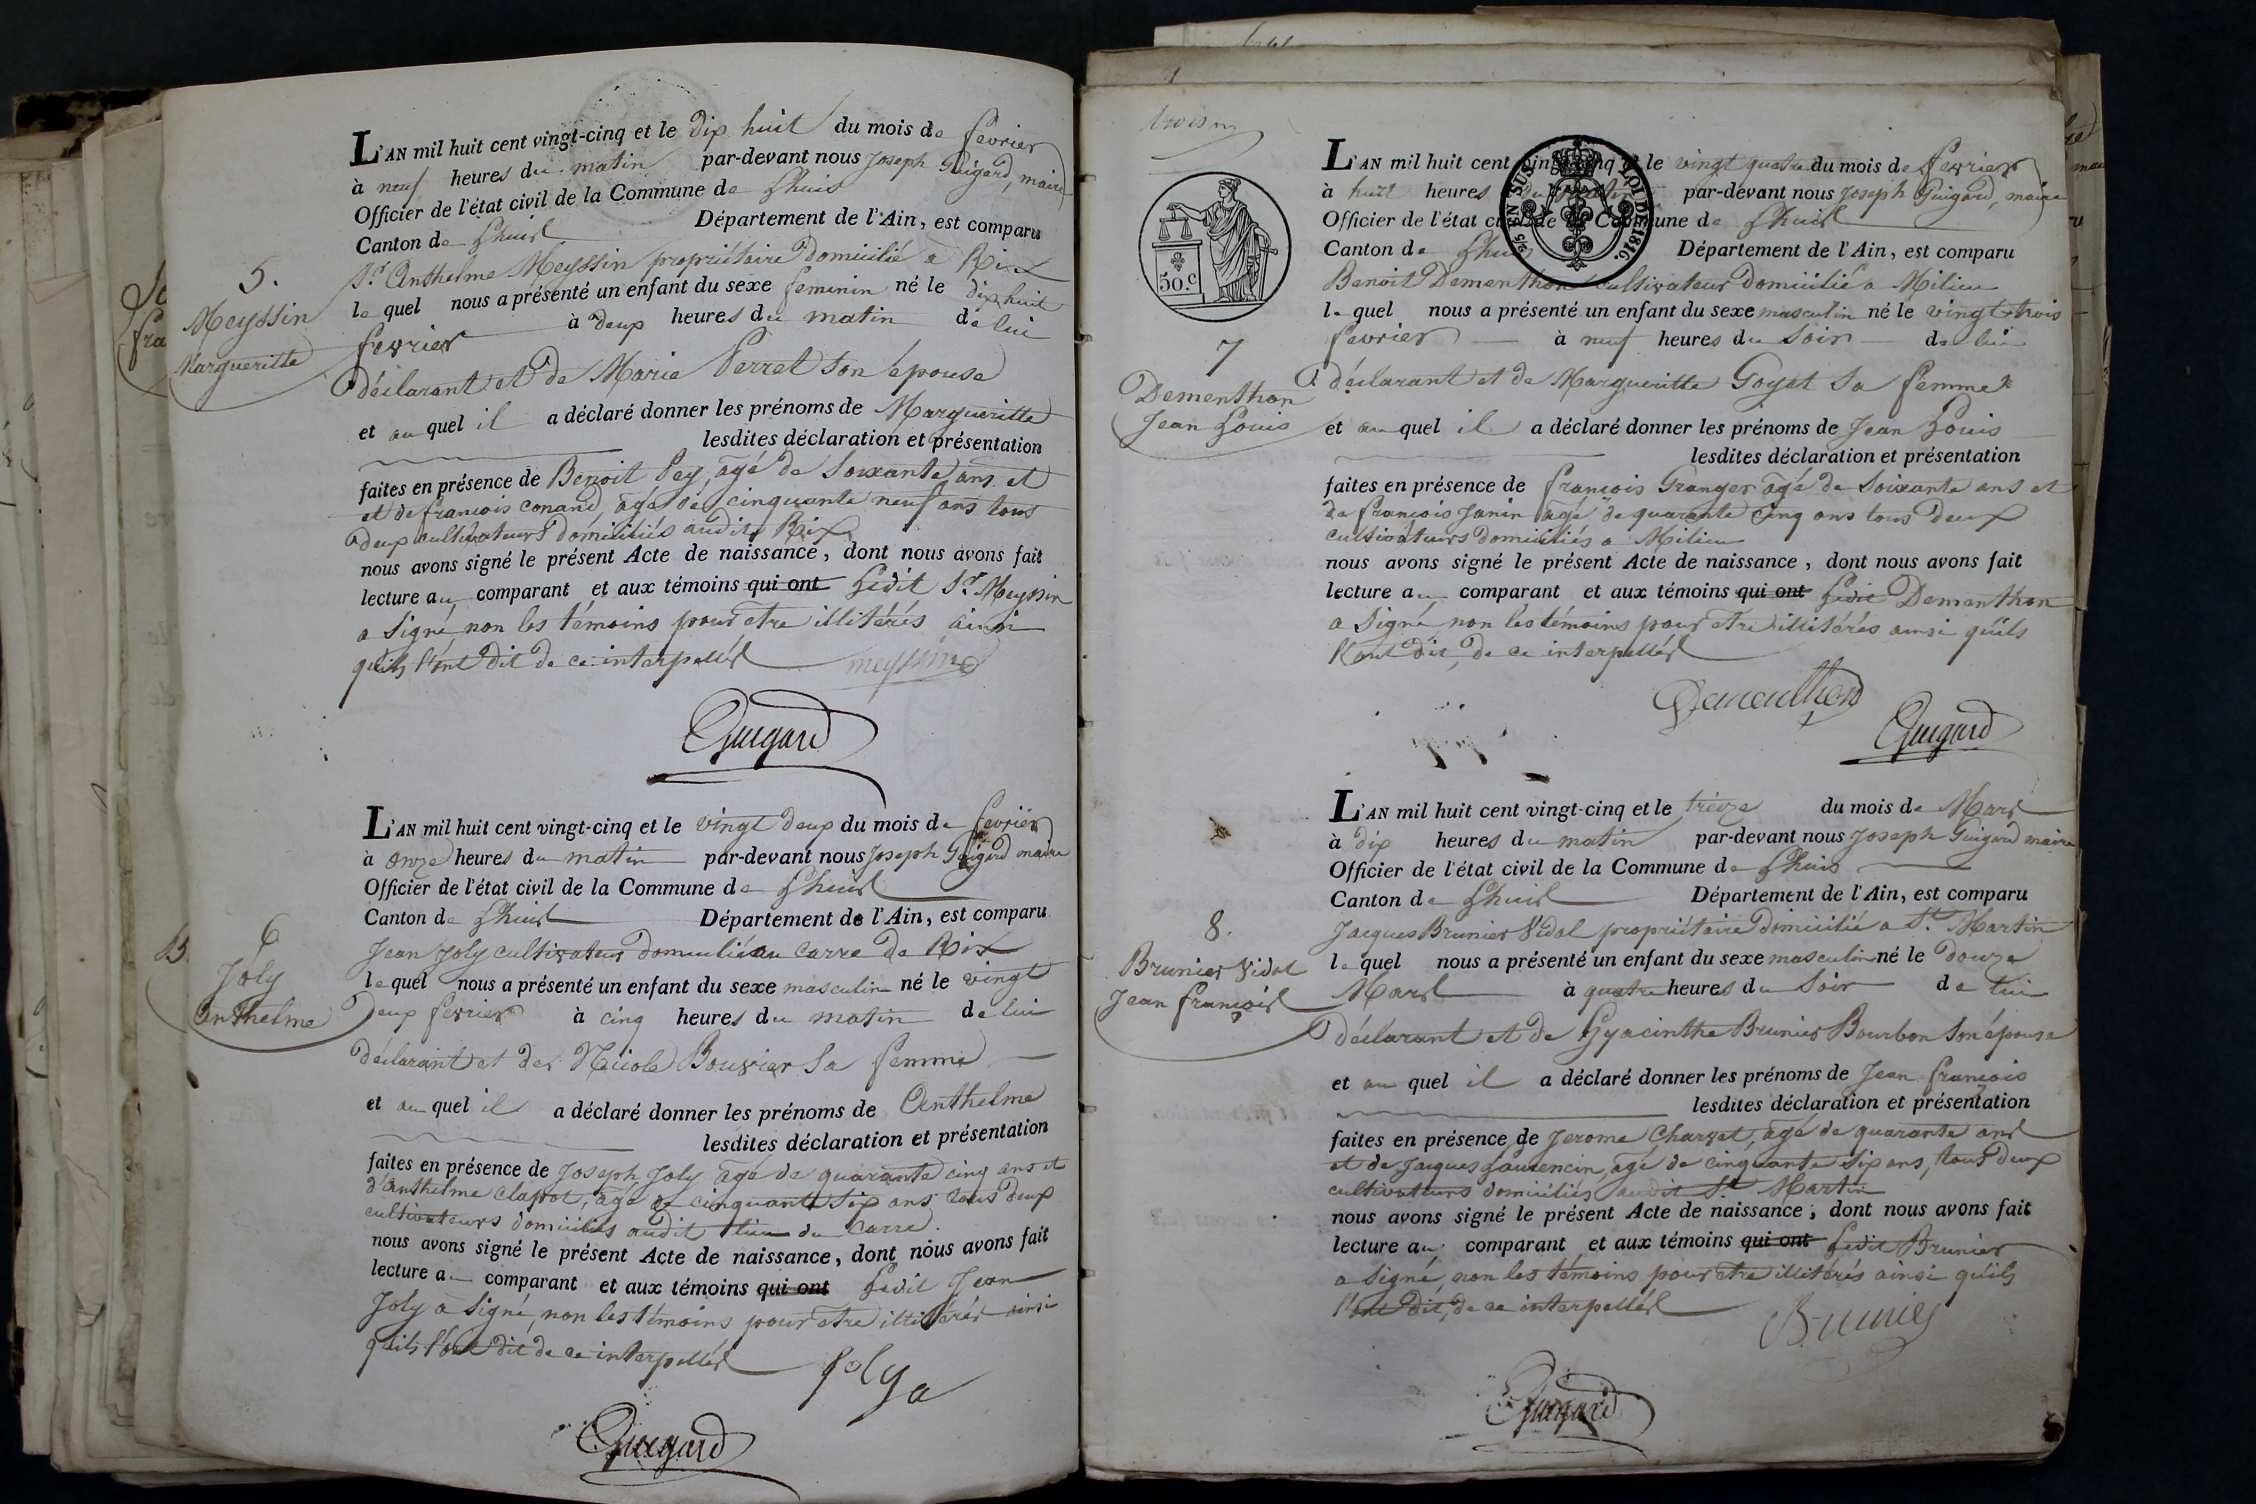 5.
Meyssin
Margueritte
L'AN mil huit cent vingt-cinq et le dix huit du mois de fevrier
à neuf heures du matin par-devant nous Joseph Guigard, maire
Officier de l'état civil de la Commune de Lhuis
Canton de Lhuis Département de l'Ain, est comparu
Sr. Anthelme Meyssin propriétaire domicilié a Rix
lequel nous a présenté un enfant du sexe feminin né le dix huit
fevrier à deux heures du matin de lui
déclarant et de Marie Perret son épouse
et auquel il a déclaré donner les prénoms de Margueritte
lesdites déclaration et présentation
faites en présence de Benoit Pey, agé de Soixante ans et
et de françois conand, agé de cinquante neuf ans tous
deux cultivateurs domiciliés audit Rix
nous avons signé le présent Acte de naissance, dont nous avons fait
lecture au comparant et aux témoins qui ont Ledit Sr. Meyssin
a Signé non les témoins pour etre illitérés ainsi
qu'ils l'ont dit de ce interpellés meyssin
Guigard
6
Joly
Anthelme
L'AN mil huit cent vingt-cinq et le vingt deux du mois de fevrier
à onze heures du matin par-devant nous Joseph Guigard maire
Officier de l'état civil de la Commune de Lhuis
Canton de Lhuis Département de l'Ain, est comparu
Jean Joly cultivateur domicilié au Carre de Rix
lequel nous a présenté un enfant du sexe masculin né le vingt
deux fevrier à cinq heures du matin de lui
déclarant et de Nicole Bouvier Sa femme
et auquel il a déclaré donner les prénoms de Anthelme
lesdites déclaration et présentation
faites en présence de Joseph Joly agé de quarante cinq ans et
d'Anthelme Clapot, agé de cinquante Six ans tous deux
cultivateurs domiciliés audit lieu du Carre.
nous avons signé le présent Acte de naissance, dont nous avons fait
lecture au comparant et aux témoins qui ont Ledit Jean
Joly a Signé, non les témoins pour etre illitérés ainsi
qu'ils l'ont dit de ce interpellés Joly
Guigard
50.C
EN SUS. LOI DE 1816.
7
Dementhon
Jean Louis
L'AN mil huit cent vingt-cinq et le vingt quatre du mois de fevrier
à huit heures du matin par-devant nous Joseph Guigard, maire
Officier de l'état civil de la Commune de Lhuis
Canton de Lhuis Département de l'Ain, est comparu
Benoit Dementhon cultivateur domicilié a Milieu
lequel nous a présenté un enfant du sexe masculin né le vingt trois
fevrier à neuf heures du Soir de lui
déclarant et de Margueritte Goyet Sa femme
et auquel il a déclaré donner les prénoms de Jean Louis
lesdites déclaration et présentation
faites en présence de françois Granger agé de Soixante ans et
de françois Janin agé de quarente cinq ans tous deux
cultivateurs domiciliés a Milieu
nous avons signé le présent Acte de naissance, dont nous avons fait
lecture au comparant et aux témoins qui ont Ledit Dementhon
a Signé non les témoins pour etre illitérés ainsi qu'ils
l'ont dit, de ce interpellés
Dementhon
Guigard
8.
Brunier Vidal
Jean françois
L'AN mil huit cent vingt-cinq et le treize du mois de Mars
à dix heures du matin par-devant nous Joseph Guigard maire
Officier de l'état civil de la Commune de Lhuis
Canton de Lhuis Département de l'Ain, est comparu
Jacques Brunier Vidal propriétaire domicilié a St. Martin
lequel nous a présenté un enfant du sexe masculin né le douze
Mars à quatre heures du Soir de lui
déclarant et de Hyacinthe Brunier Bourbon Son épouse
et auquel il a déclaré donner les prénoms de Jean françois
lesdites déclaration et présentation
faites en présence de Jerome Charvet, agé de quarante ans
et de Jacques Laurencin, agé de cinquante Six ans, tous deux
cultivateurs domiciliés audit St. Martin
nous avons signé le présent Acte de naissance, dont nous avons fait
lecture au comparant et aux témoins qui ont Ledit Brunier
a Signé, non les témoins pour etre illitérés ainsi qu'ils
l'ont dit, de ce interpellés
Brunier
Guigard